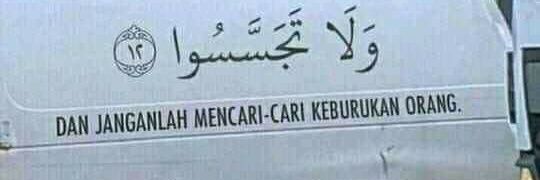 وَلَا تَجَسَّسُوا ١٢
DAN JANGANLAH MENCARI-CARI KEBURUKAN ORANG.